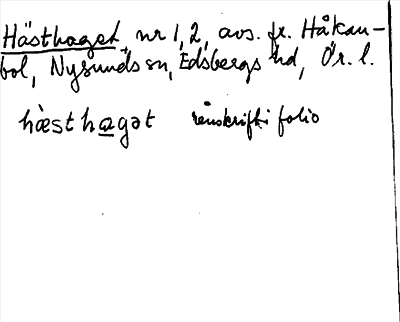 Hästhaget, nr 1, 2, avs. fr. Håkan-
bol, Nysunds sn, Edsbergs hd, Ör. l.
hὰesthagət renskrift i folio